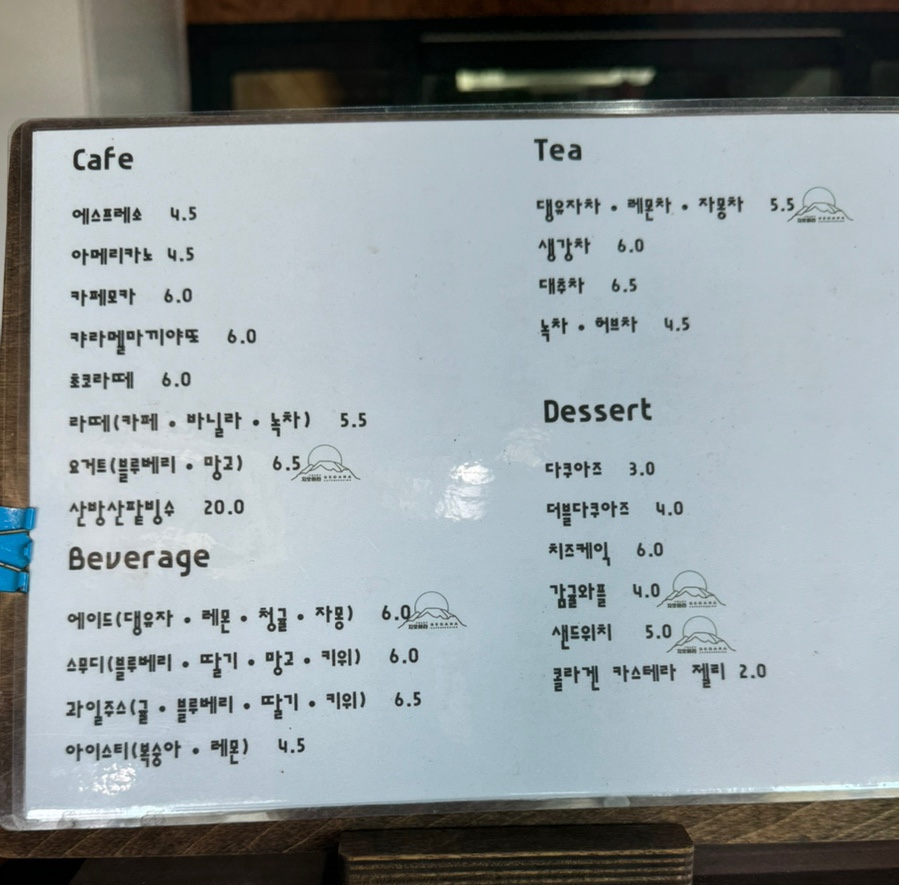 Cafe
에스프레소 4.5
아메리카노 4.5
카페모카 6.0
캬라멜마끼야또 6.0
초코라떼 6.0
라떼(카페 • 바닐라 • 녹차) 5.5
요거트(블루베리 • 망고) 6.5
산방산팥빙수 20.0
Beverage
에이드(댕유자 • 레몬 • 청귤 • 자몽) 6.0
스무디(블루베리 • 딸기 • 망고 • 키위) 6.0
과일주스(귤 • 블루베리 • 딸기 • 키위) 6.5
아이스티(복숭아 • 레몬) 4.5
Tea
댕유자차 • 레몬차 • 자몽차 5.5
생강차 6.0
대추차 6.5
녹차 • 허브차 4.5
Dessert
다쿠아즈 3.0
더블다쿠아즈 4.0
치즈케잌 6.0
감귤와플 4.0
샌드위치 5.0
콜라겐 카스테라 젤리 2.0